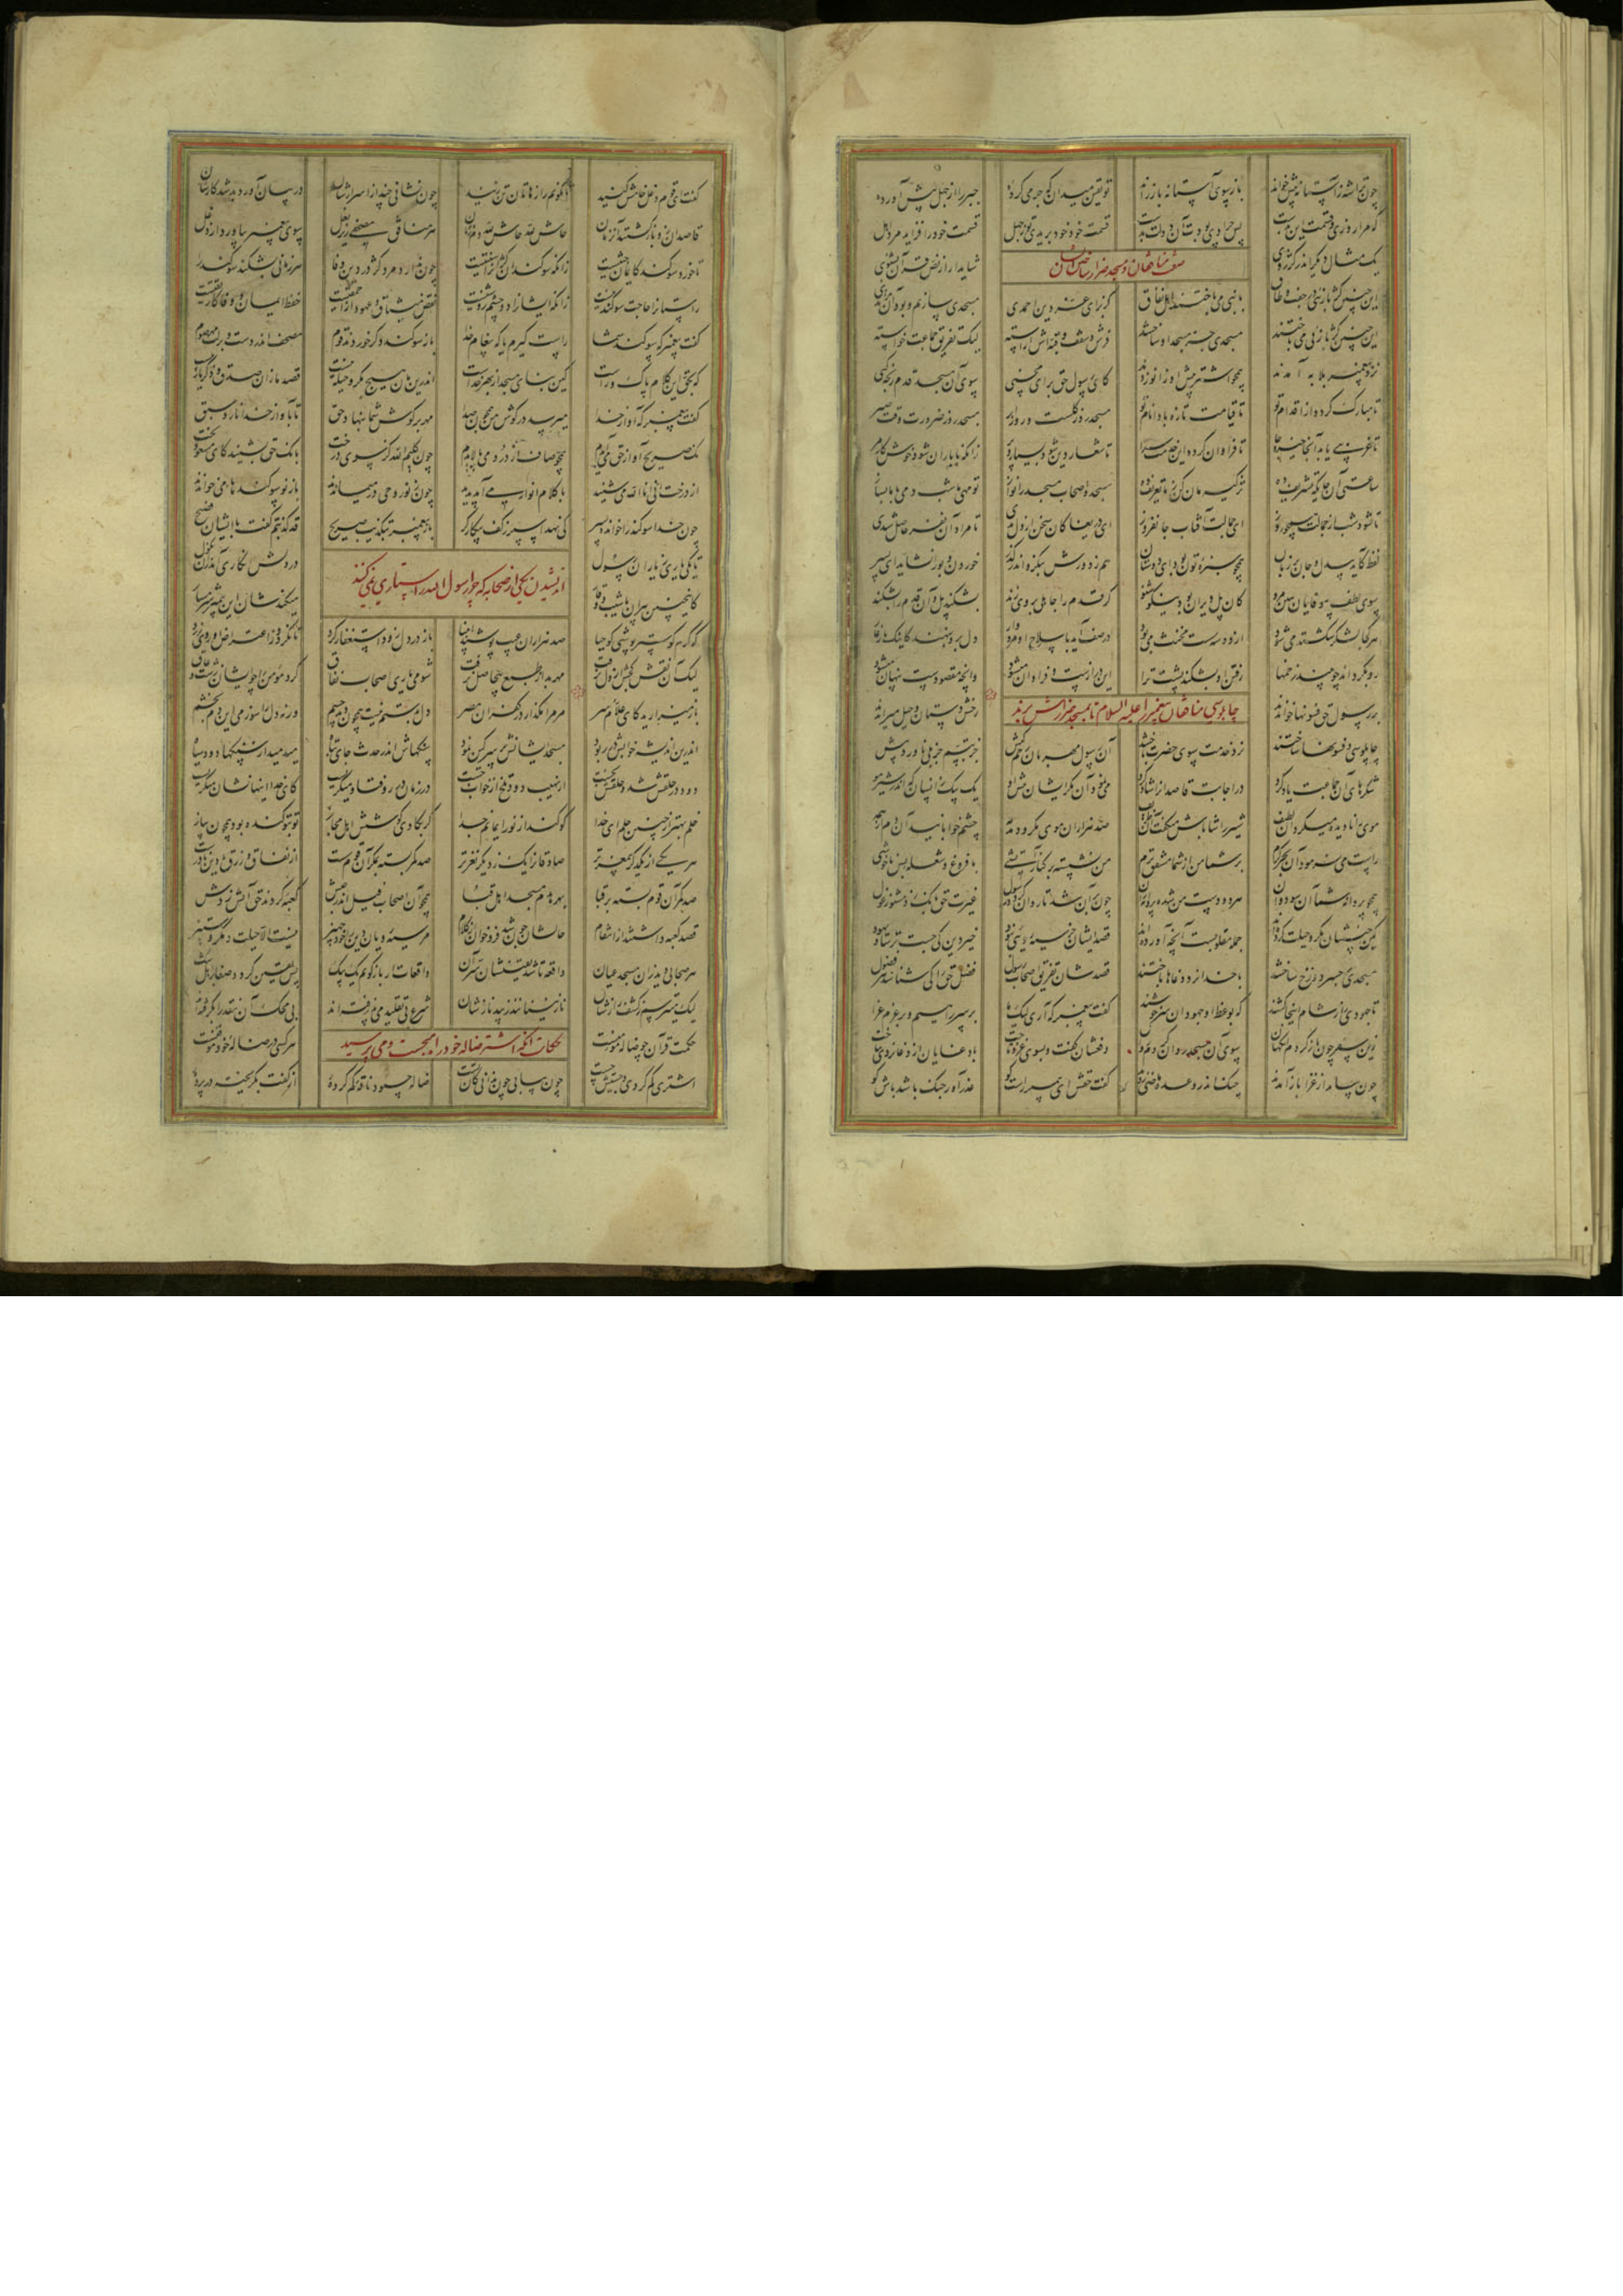 چون ترا شه ز آستانه پیش خواند باز سوی آستانه باز راند تو یقین میدان که جرمی کرده جبر را از جهل پیش آورده
که مرا روزی و قسمت این بدست پس چرا دی بودت آن دولت بدست قسمت خود خود بریدی تو ز جهل قسمت خود را فزاید مرد اهل
یک مثال دیگر اندر کژروی شاید ار از نقل قرآن بشنوی
این چنین کژ بازیی در جفت و طاق با نبی می باختند اهل نفاق کز برای عز دین احمدی مسجدی سازیم و بود آن مرتدی
این چنین کژ بازیی می باختند مسجدی جز مسجد او ساختند فرش و سقف و قبه اش آراسته لیک تفریق جماعت خواسته
نزد پیغمبر بلابه آمدند همچو اشتر پیش او زانو زدند کای رسول حق برای محسنی سوی آن مسجد قدم رنجه کنی
تا مبارک گردد از اقدام تو تا قیامت تازه بادا نام تو مسجد روز گلست و روز ابر مسجد روز ضرورت وقت صبر
تا غریبی یابد آنجا خیر و جا تا فراوان گردد این خدمت سرا تا شعار دین شود بسیار و پر زانکه با یاران شود خوش کار مر
ساعتی آن جایگه تشریف ده تزکیه مان کن ز ما تعریف ده مسجد و اصحاب مسجد را نواز تو مهی ما شب دمی با ما بساز
تا شود شب از جمالت همچو روز ای جمالت آفتاب جان فروز ای دریغا کان سخن از دل بدی تا مراد آن نفر حاصل شدی
لفظ کاید بی دل و جان بر زبان همچو سبزه تون بود ای دوستان هم ز دورش بنگر و اندر گذر خوردن و بو را نشاید ای پسر
سوی لطف بی وفایان هین مرو کان پل ویران بود نیکو شنو گر قدم را جاهلی بر وی زند بشکند پل و آن قدم را بشکند
هر کجا لشکر شکسته می شود از دو سه سست مخنث می بود در صف آید با سلاح او مردوار دل برو بنهند کاینک یار غار
رو بگرداند چو بیند زخمها رفتن او بشکند پشت ترا این درازست و فراوان می شود وانچه مقصودست پنهان می شود
چاپلوسی منافقان پیغمبر را علیه السلام تا بمسجد ضرارش برند
بر رسول حق فسونها خواندند رخش دستان و حیل میراندند
چاپلوسی و فسونها ساختند نزد خدمت سوی حضرت تاختند آن رسول مهربان رحم کیش جز تبسم جز بلی ناورد پیش
شکرهای آن جماعت یاد کرد در اجابت قاصدان را شاد کرد می نمود آن مکر ایشان پیش او یک بیک زان سان که اندر شیر مو
موی را نادیده میکرد آن لطیف شیر را شاباش میگفت آن ظریف صد هزاران موی مکر و دمدمه چشم خوابانید آن دم از همه
راست می فرمود آن بحر کرم بر شما من از شما مشفق ترم من نشسته بر کنار آتشی با فروغ و شعله بس ناخوشی
همچو پروانه شما آن سو دوان هر دو دست من شده پروانه ران چون بر آن شد تا روان گردد رسول غیرت حق بانگ زد مشنو ز غول
کین خبیثان مکر و حیلت کرده اند جمله مقلوبست آنچه آورده اند قصد ایشان جز سیه رویی نبود خیر دین کی جست ترسا و جهود
مسجدی بر جسر دوزخ ساختند با خدا نرد دغاها باختند قصدشان تفریق اصحاب رسول فضل حق را کی شناسد هر فضول
تا جهودی را ز شام اینجا کشند که بوعظ او جهودان سرخوشند گفت پیغمبر که آری لیک ما بر سر راهیم و بر عزم غزا
زین سفر چون باز گردم آنگهان سوی آن مسجد روان گردم روان دفعشان گفت و بسوی غزو تاخت با دغایان از دغا نردی بباخت
چون بیامد از غزا باز آمدند چنگ اندر وعده ماضی زدند گفت حقش ای پیمبر فاش گو عذر آور جنگ باشد باش گو
گفت ای قوم دغل خامش کنید تا نگویم رازهاتان تن زنید چون نشانی چند از اسرارشان در بیان آورد بد شد کارشان
قاصدان زو باز گشتند آن زمان حاش لله حاش لله دم زنان هر منافق مصحفی زیر بغل سوی پیغمبر بیاورد از دغل
تا خورد سوگند کایمان جنتیست زانکه سوگند آن کژان را سنتیست چون ندارد مرد کژ در دین وفا هر زمانی بشکند سوگند را
راستان را حاجت سوگند نیست زانکه ایشان را دو چشم روشنیست نقض میثاق و عهود از احمقیست حفظ ایمان و وفا کار تقیست
گفت پیغمبر که سوگند شما راست گیرم یا که پیغام خدا باز سوگند دگر خوردند قوم مصحف اندر دست و بر لب مهر صوم
که بحق این کلام پاک راست کین بنای مسجد از بهر خداست اندرین جا هیچ مکر و حیله نیست قصد ما زان صدق و ذکر یاربیست
گفت پیغمبر که آواز خدا میرسد در گوش من همچون صدا مهر بر گوش شما بنهاد حق تا بآواز خدا نارد سبق
نک صریح آواز حق می آیدم همچو صاف از درد می پالایدم چون کلیم الله کز سوی درخت بانگ حق بشنید کای مسعود بخت
از درخت انی انا الله می شنید با کلام انوار می آمد پدید چون ز نور وحی در می ماندند باز نو سوگندها می خواندند
چون خدا سوگند را خواند سپر کی نهد اسپر ز کف پیکارگر باز پیغمبر بتکذیب صریح قد کذبتم گفت با ایشان فصیح
اندیشیدن یکی از صحابه که چرا رسول الله ستاری نمی کند
تا یکی یاری ز یاران رسول در دلش انکار آمد زان نکول
کاین چنین پیران با شیب و وقار میکندشان این پیمبر شرمسار
کو کرم کو سترپوشی کو حیا صد هزاران عیب پوشند انبیا باز در دل زود استغفار کرد تا نگردد ز اعتراض او روی زرد
لیک آن نقش کژش از دل نرفت مهر بد از طبع بیحاصل نرفت شومی یاری اصحاب نفاق کرد مؤمن را چو ایشان زشت و عاق
باز میزارید کای علام سر مر مرا مگذار در کفران مصر دل بدستم نیست همچون دید چشم ورنه دل را سوزمی این دم بخشم
اندرین اندیشه خوابش در ربود مسجد ایشانش پر سرگین نمود سنگهاش اندر حدث جای تباه میدمید از سنگها دود سیاه
دود در حلقش شد و حلقش بخست از نهیب دود تلخ از خواب جست در زمان در رو فتاد و میگریست کای خدا اینها نشان منکریست
خلم بهتر از چنین حلم ای خدا که کند از نور ایمانم جدا گر بکاوی کوشش اهل مجاز تو بتو گنده بود همچون پیاز
هر یکی از یکدگر بی مغز تر صادقان را یک ز دیگر نغزتر صد کمر بسته مکر آن قوم ست از نفاق و زرق و دین نادرست
صد کمر آن قوم بسته بر قبا بهر هدم مسجد اهل قبا همچو آن اصحاب فیل اندر حبش کعبه کردند حق آتش زدش
قصد کعبه داشتند از انتقام حالشان چون شد فرو خوان از کلام مر سیه رویان دین را خود جهیز نیست الا حیلت و مکر و ستیز
هر صحابی دید زان مسجد عیان واقعه تا شد یقینشان سر آن واقعات ار باز گویم یک بیک پس یقین گردد صفا بر اهل شک
لیک میترسم ز کشف رازشان نازنینانند و زیبد نازشان شرع بی تقلید می پذرفته اند بی محک آن نقد را بگرفته اند
حکایت آنکه اشتر ضاله خود را میجست و می پرسید
حکمت قرآن چو ضاله مؤمنست هر کسی در ضاله خود موقنست
اشتری گم کردی و جستیش چست چون بیابی چون ندانی کان تست ضاله چه بود ناقه گم کرده از کفت بگریخته در پرده